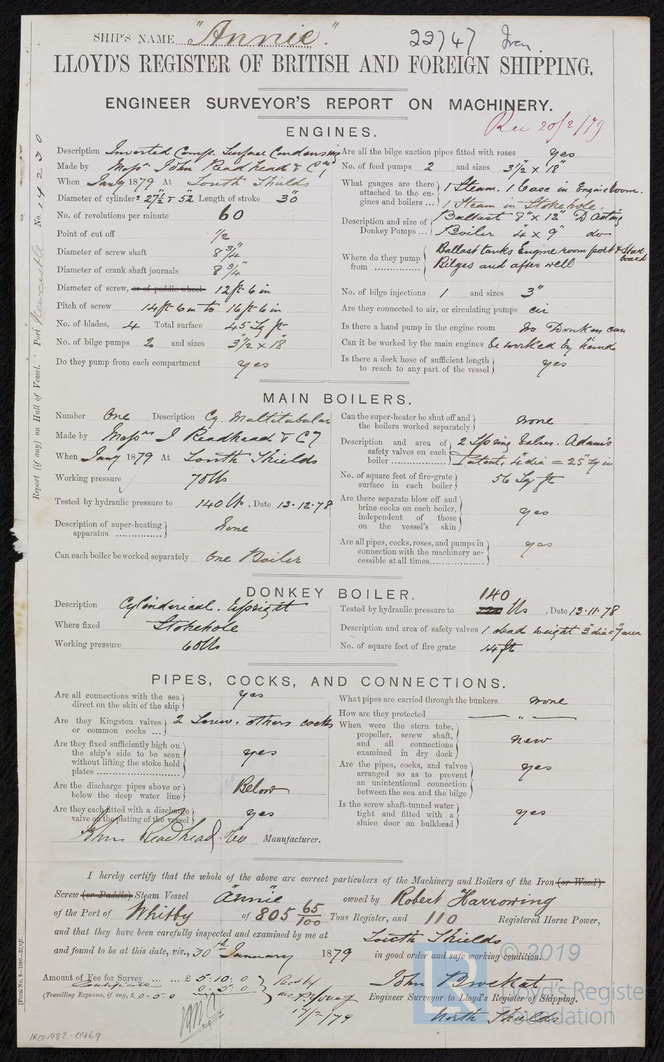 SHIP'S NAME "Annie." 22747 Iron
LLOYD'S REGISTER OF BRITISH AND FOREIGN SHIPPING.
ENGINEER SURVEYOR'S REPORT ON MACHINERY.
Rec 20/2/79
Report (if any) on Hull of Vessel. Port Newcastle No. 14230
ENGINES.
Description Inverted Comp. Surface Condensing
Made by Messrs John Readhead & Co
When Jany 1879 At South Shields
Diameter of cylinders 27½" & 52" Length of stroke 30
No. of revolutions per minute 60
Point of cut off 1/2
Diameter of screw shaft 8 3/4"
Diameter of crank shaft journals 8 3/4"
Diameter of screw, or of paddle wheel 12 ft 6 in
Pitch of screw 14 ft 6 in to 16 ft 6 in
No. of blades, 4 Total surface 45 Sq ft
No. of bilge pumps 2 and sizes 3½ x 18"
Do they pump from each compartment yes
Are all the bilge suction pipes fitted with roses yes
No. of feed pumps 2 and sizes 3½" x 18"
What gauges are there attached to the engines and boilers ... 1 Steam. 1 Vac in Engine room.
1 Steam in Stokehole.
Description and size of Donkey Pumps ... Ballast 8" x 12" D Acting
Boiler 4 x 9" do
Where do they pump from ... Ballast tanks Engine room port & Starboard
Bilges and after well
No. of bilge injections 1 and sizes 3"
Are they connected to air, or circulating pumps cir
Is there a hand pump in the engine room no Donkey can
Can it be worked by the main engines be worked by hand
Is there a deck hose of sufficient length to reach to any part of the vessel yes
MAIN BOILERS.
Number One Description Cy. Multitubular
Made by Messrs J Readhead & Co
When Jany 1879 At South Shields
Working pressure 70 lbs
Tested by hydraulic pressure to 140 lbs. Date 13-12-78
Description of super-heating apparatus ... None
Can each boiler be worked separately One Boiler
Can the super-heater be shut off and the boilers worked separately none
Description and area of safety valves on each boiler ... 2 Spring Adams
Patent, 4" dia = 25 sq in
No. of square feet of fire-grate surface in each boiler 56 Sq ft
Are there separate blow off and brine cocks on each boiler, independent of those on the vessel's skin yes
Are all pipes, cocks, roses, and pumps in connection with the machinery accessible at all times... yes
DONKEY BOILER.
Description Cylinderical. Upright
Where fixed Stokehole
Working pressure 60 lbs
Tested by hydraulic pressure to 140 lbs, Date 13-11-78
Description and area of safety valves 1 dead weight 3" dia = 7 area
No. of square feet of fire grate 14 ft
PIPES, COCKS, AND CONNECTIONS.
Are all connections with the sea direct on the skin of the ship yes
Are they Kingston valves or common cocks ... 2 Screw. others cocks
Are they fixed sufficiently high on the ship's side to be seen without lifting the stoke hold plates yes
Are the discharge pipes above or below the deep water line Below
Are they each fitted with a discharge valve on the plating of the vessel yes
John Readhead & Co Manufacturer.
What pipes are carried through the bunkers none
How are they protected — " —
When were the stern tube, propeller, screw shaft, and all connections examined in dry dock new
Are the pipes, cocks, and valves arranged so as to prevent an unintentional connection between the sea and the bilge yes
Is the screw shaft-tunnel water tight and fitted with a sluice door on bulkhead yes
I hereby certify that the whole of the above are correct particulars of the Machinery and Boilers of the Iron (or Wood)
Screw (or Paddle) Steam Vessel "Annie" owned by Robert Harrowing
of the Port of Whitby of 805 65/100 Tons Register, and 110 Registered Horse Power,
and that they have been carefully inspected and examined by me at South Shields
and found to be at this date, viz., 30th January 1879 in good order and safe working condition.
Amount of Fee for Survey ... £ 5.10.0
Certificate 0.5.0
(Travelling Expenses, if any, £ 0.5.0
John Brocklat
Engineer Surveyor to Lloyd's Register of Shipping.
North Shields
17/2/79
IRON482-0469
© 2019
Lloyd's Register
Foundation